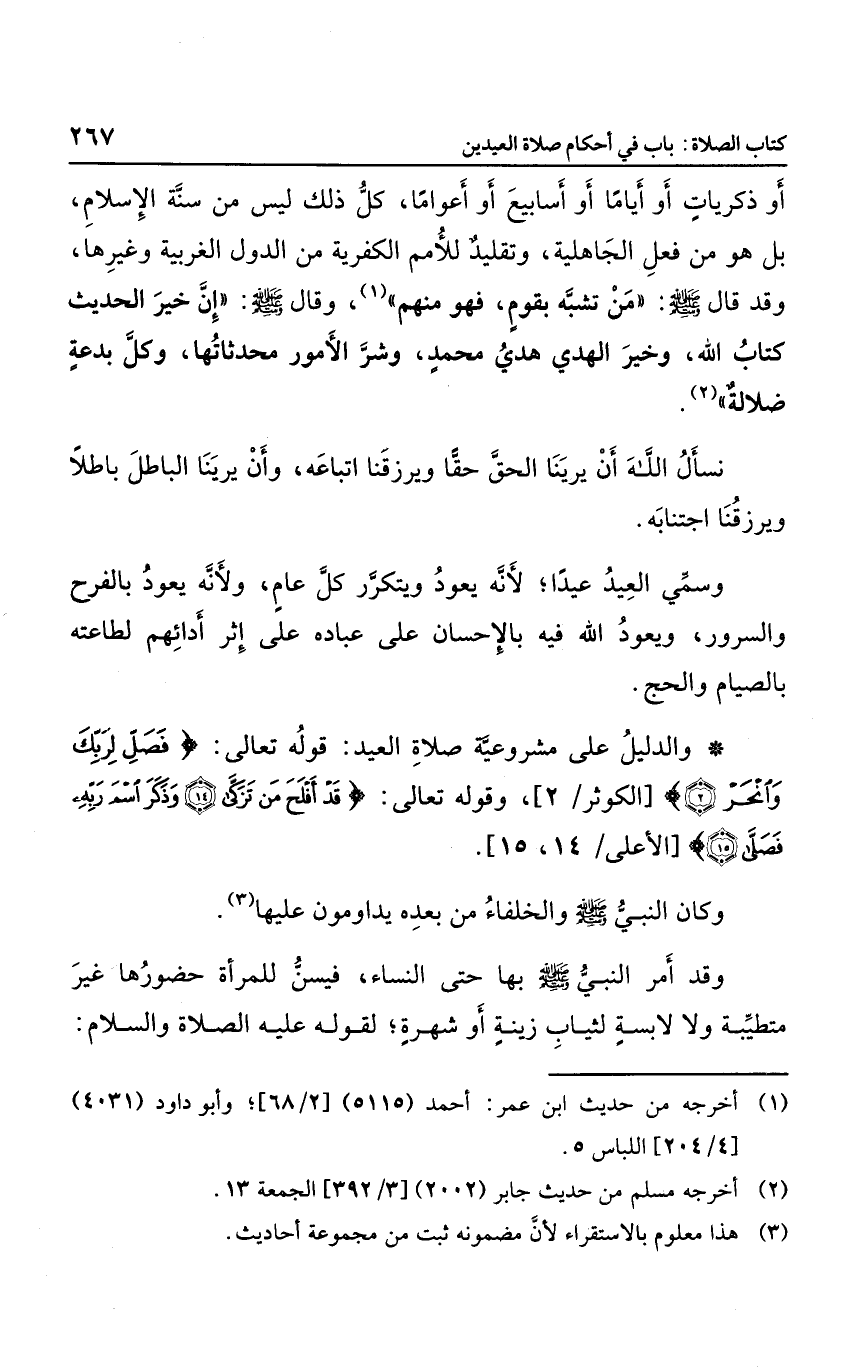 كتاب الصلاة: باب في أحكام صلاة العيدين ٢٦٧
أَو ذكرياتٍ أَو أَيامًا أَو أَسابيعَ أَو أَعوامًا، كلُّ ذلك ليس من سنَّة الإِسلامِ،
بل هو من فعلِ الجَاهلية، وتقليدٌ للأُمم الكفرية من الدول الغربية وغيرِها،
وقد قال ﷺ: «مَنْ تشبَّه بقومٍ، فهو منهم»(١)، وقال ﷺ: «إِنَّ خيرَ الحديث
كتابُ الله، وخيرَ الهدي هديُ محمدٍ، وشرَّ الأَمور محدثاتُها، وكلَّ بدعةٍ
ضلالةٌ»(٢).
نسأَلُ اللَّـهَ أَنْ يريَنَا الحقَّ حقًّا ويرزقَنا اتباعَه، وأَنْ يريَنَا الباطلَ باطلاً
ويرزقُنَا اجتنابَه.
وسمِّي العِيدُ عيدًا؛ لأَنَّه يعودُ ويتكرَّر كلَّ عامٍ، ولأَنَّه يعودُ بالفرح
والسرور، ويعودُ الله فيه بالإِحسان على عباده على إِثر أَدائِهم لطاعته
بالصيام والحج.
* والدليلُ على مشروعيَّة صلاةِ العيد: قولُه تعالى: ﴿ فَصَلِّ لِرَبِّكَ
وَٱنْحَرْ ۝٢﴾ [الكوثر/ ٢]، وقوله تعالى: ﴿ قَدْ أَفْلَحَ مَن تَزَكَّىٰ ۝١٤ وَذَكَرَ ٱسْمَ رَبِّهِۦ
فَصَلَّىٰ ۝١٥﴾ [الأعلى/ ١٤، ١٥].
وكان النبيُّ ﷺ والخلفاءُ من بعدِه يداومون عليها(٣).
وقد أَمر النبيُّ ﷺ بها حتى النساء، فيسنُّ للمرأة حضورُها غيرَ
متطيِّبة ولا لابسةٍ لثيابِ زينةٍ أَو شهرةٍ؛ لقوله عليه الصلاة والسلام:
(١) أخرجه من حديث ابن عمر: أحمد (٥١١٥) [٦٨/٢]؛ وأبو داود (٤٠٣١)
[٢٠٤/٤] اللباس ٥.
(٢) أخرجه مسلم من حديث جابر (٢٠٠٢) [٣٩٢/٣] الجمعة ١٣.
(٣) هذا معلوم بالاستقراء لأنَّ مضمونه ثبت من مجموعة أحاديث.